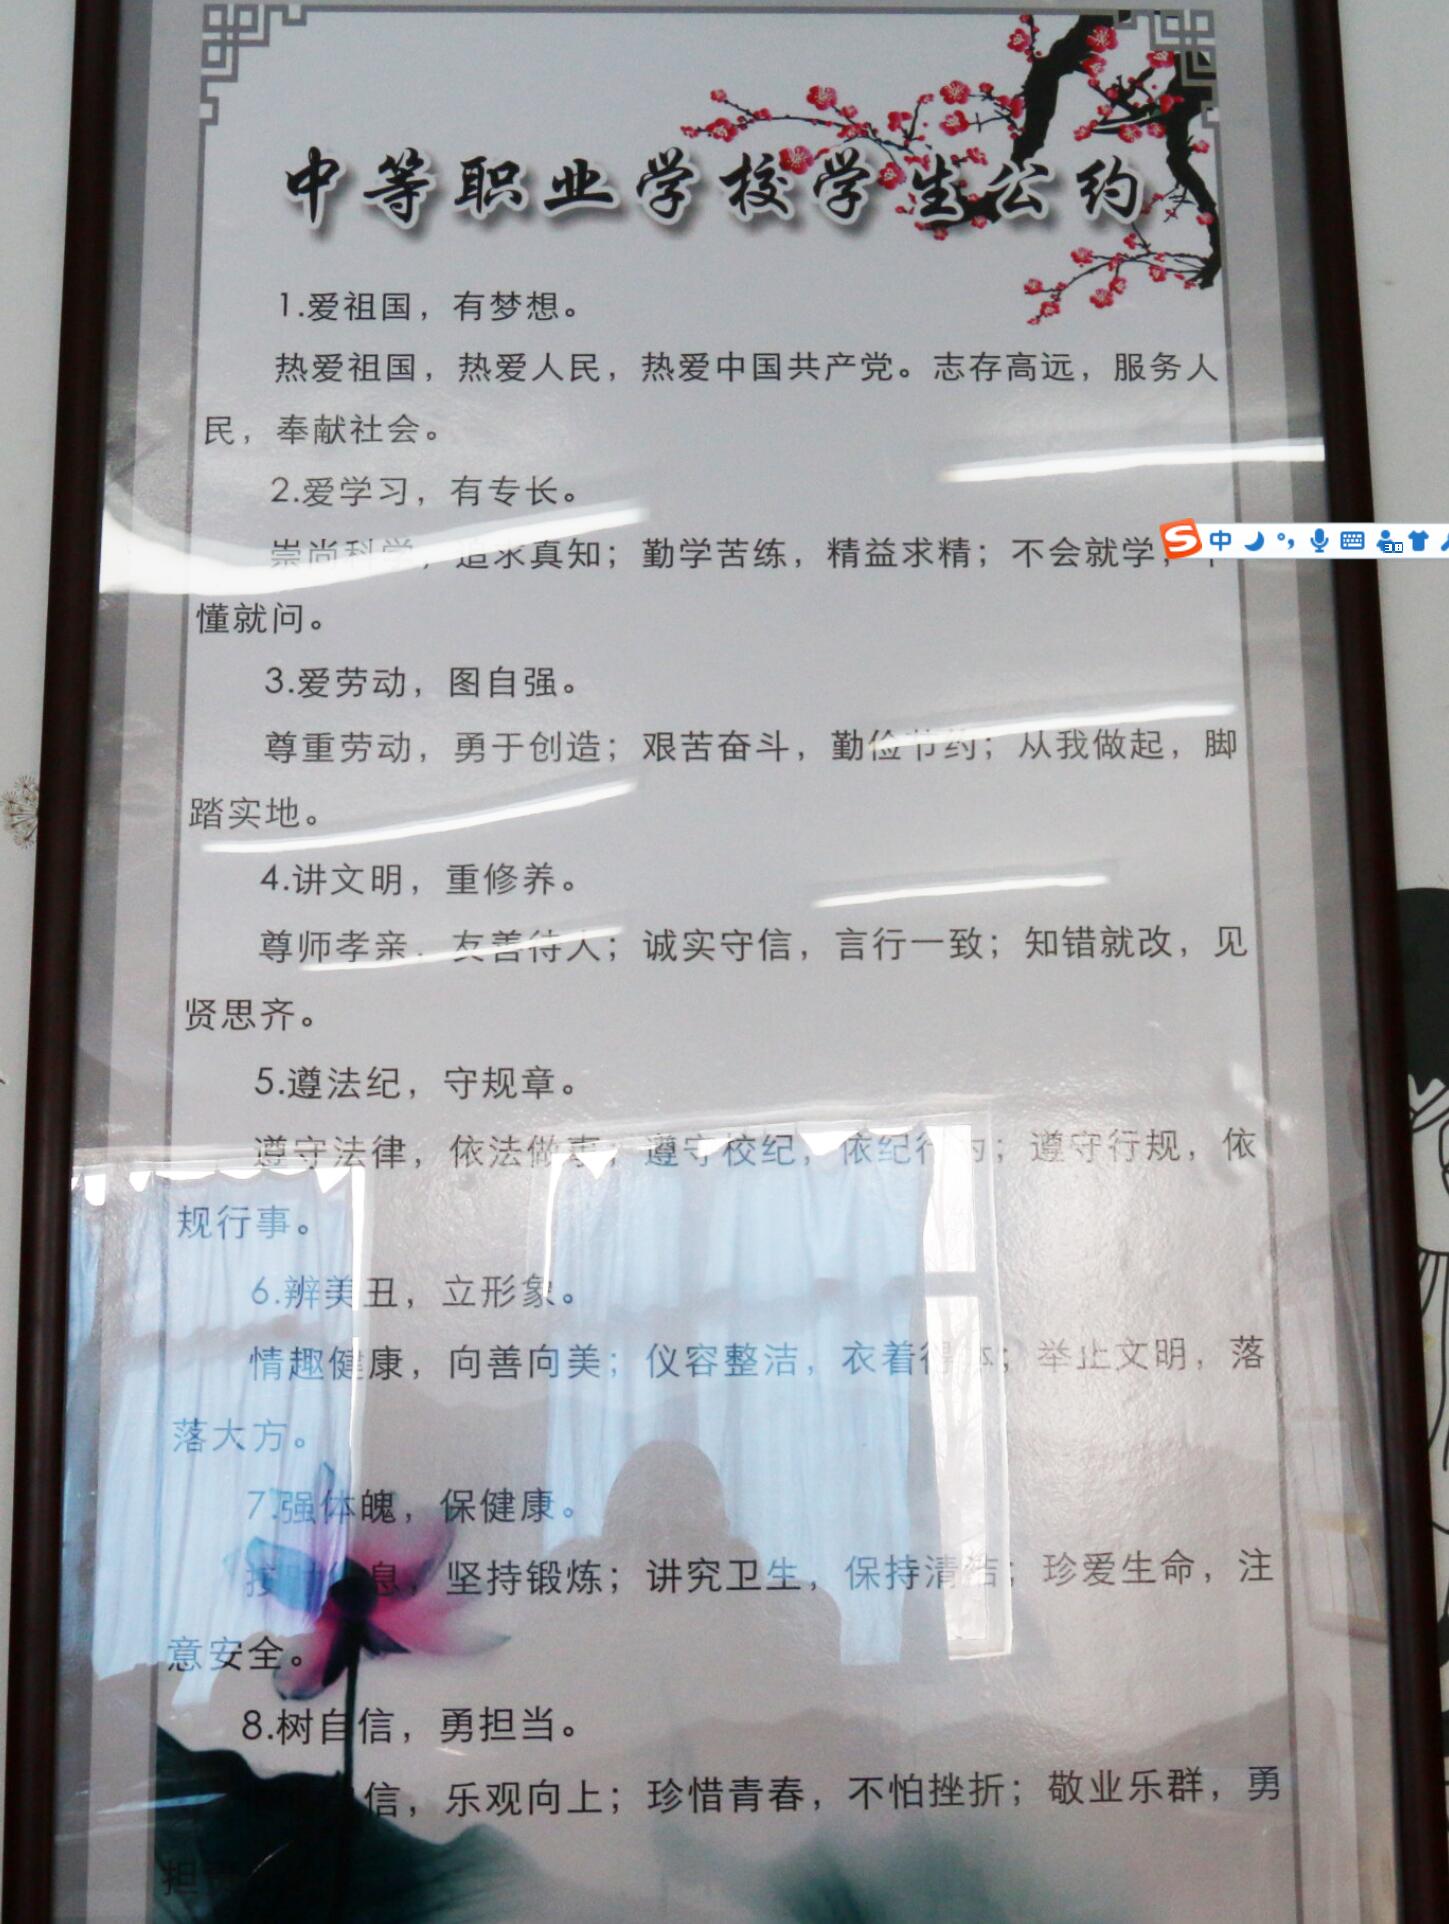 中等职业学校学生公约
1.爱祖国，有梦想。
热爱祖国，热爱人民，热爱中国共产党。志存高远，服务人
民，奉献社会。
2.爱学习，有专长。
崇尚科学，追求真知；勤学苦练，精益求精；不会就学，
懂就问。
3.爱劳动，图自强。
尊重劳动，勇于创造；艰苦奋斗，勤俭节约；从我做起，脚
踏实地。
4.讲文明，重修养。
尊师孝亲，友善待人；诚实守信，言行一致；知错就改，见
贤思齐。
5.遵法纪，守规章。
遵守法律，依法做事；遵守校纪，依纪行为；遵守行规，依
规行事。
6.辨美丑，立形象。
情趣健康，向善向美；仪容整洁，衣着得体；举止文明，落
落大方。
7.强体魄，保健康。
按时息，坚持锻炼；讲究卫生，保持清洁；珍爱生命，注
意安全。
8.树自信，勇担当。
信，乐观向上；珍惜青春，不怕挫折；敬业乐群，勇
担
中
38